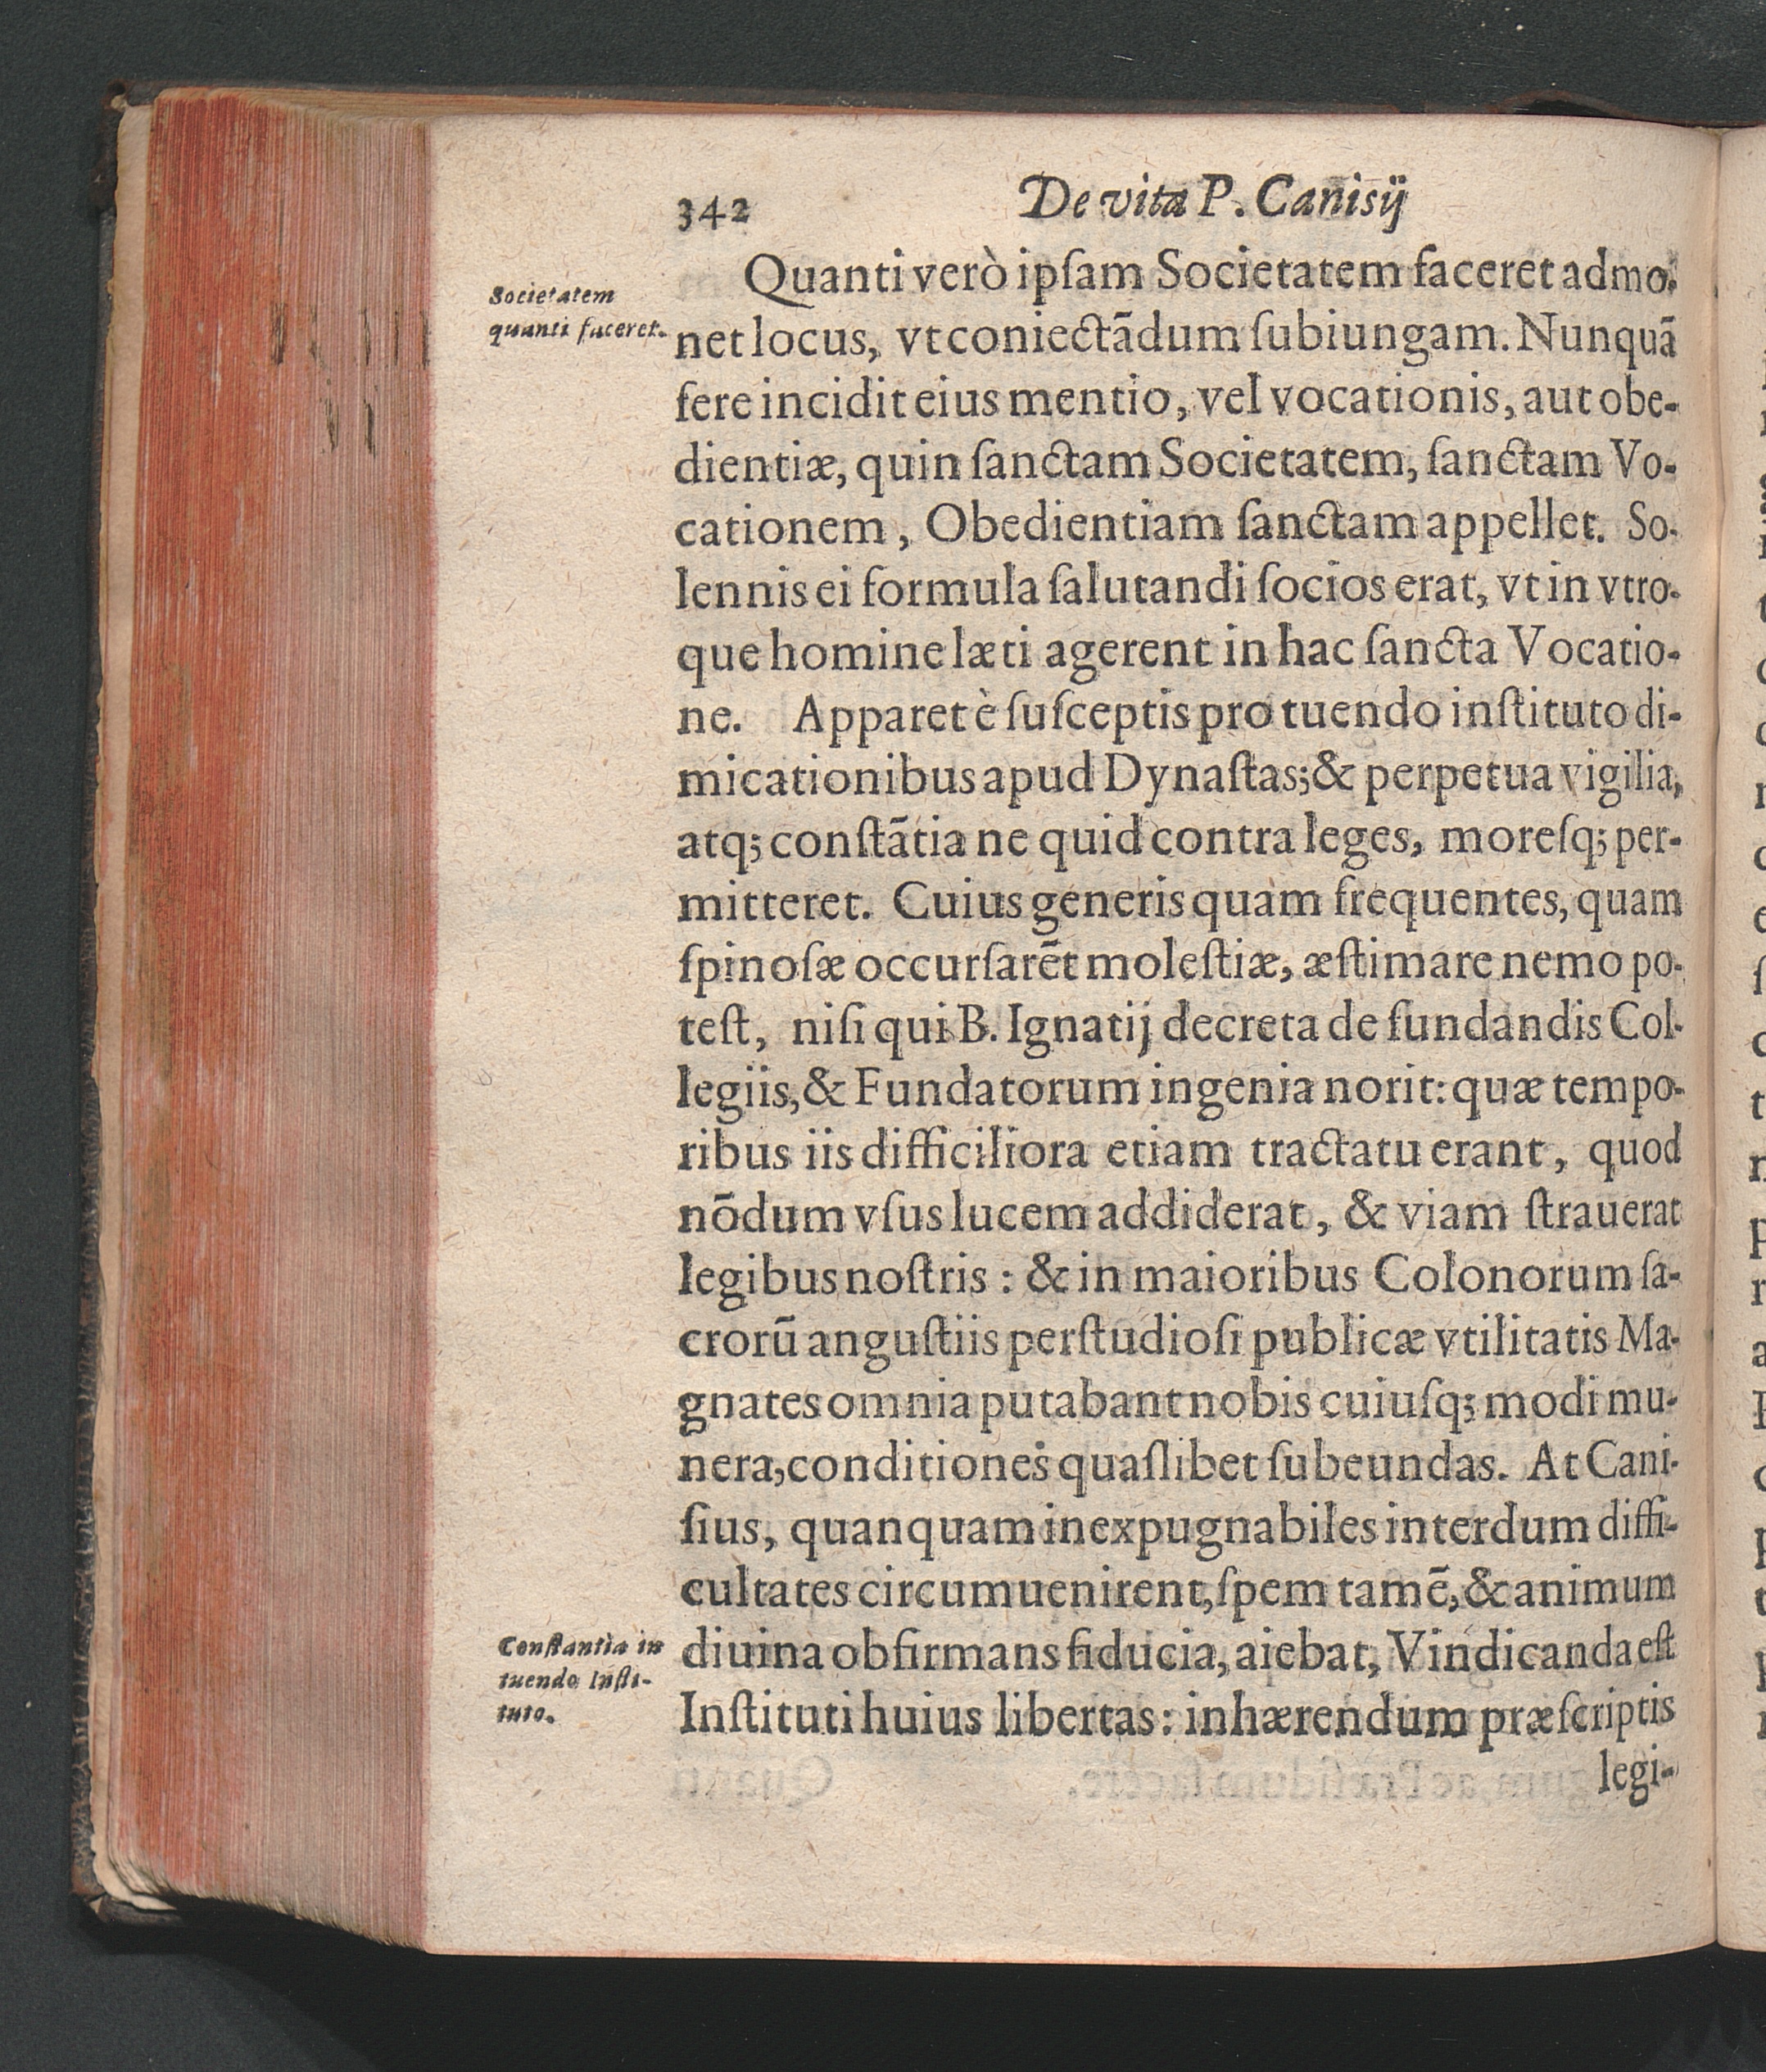 342 De vita P. Canisij
Societatem
quanti faceret.
Quanti verò ipſam Societatem faceret admo-
net locus, vt coniectādum ſubiungam. Nunquā
fere incidit eius mentio, vel vocationis, aut obe-
dientiæ, quin ſanctam Societatem, ſanctam Vo-
cationem, Obedientiam ſanctam appellet. So-
lennis ei formula ſalutandi ſocios erat, vt in vtro-
que homine læti agerent in hac ſancta Vocatio-
ne. Apparet è ſuſceptis pro tuendo inſtituto di-
micationibus apud Dynaſtas; & perpetua vigilia,
atq; conſtātia ne quid contra leges, moreſq; per-
mitteret. Cuius generis quam frequentes, quam
ſpinoſæ occurſarēt moleſtiæ, æſtimare nemo po-
teſt, niſi qui B. Ignatij decreta de fundandis Col-
legiis, & Fundatorum ingenia norit: quæ tempo-
ribus iis difficiliora etiam tractatu erant, quod
nōdum vſus lucem addiderat, & viam ſtrauerat
legibus noſtris: & in maioribus Colonorum ſa-
crorū anguſtiis perſtudioſi publicæ vtilitatis Ma-
gnates omnia putabant nobis cuiuſq; modi mu-
nera, conditiones quaſlibet ſubeundas. At Cani-
ſius, quanquam inexpugnabiles interdum diffi-
cultates circumuenirent, ſpem tamē, & animum
Conſtantia in
tuendo Inſti-
tuto.
diuina obfirmans fiducia, aiebat, Vindicanda eſt
Inſtituti huius libertas: inhærendum præſcriptis
legi-